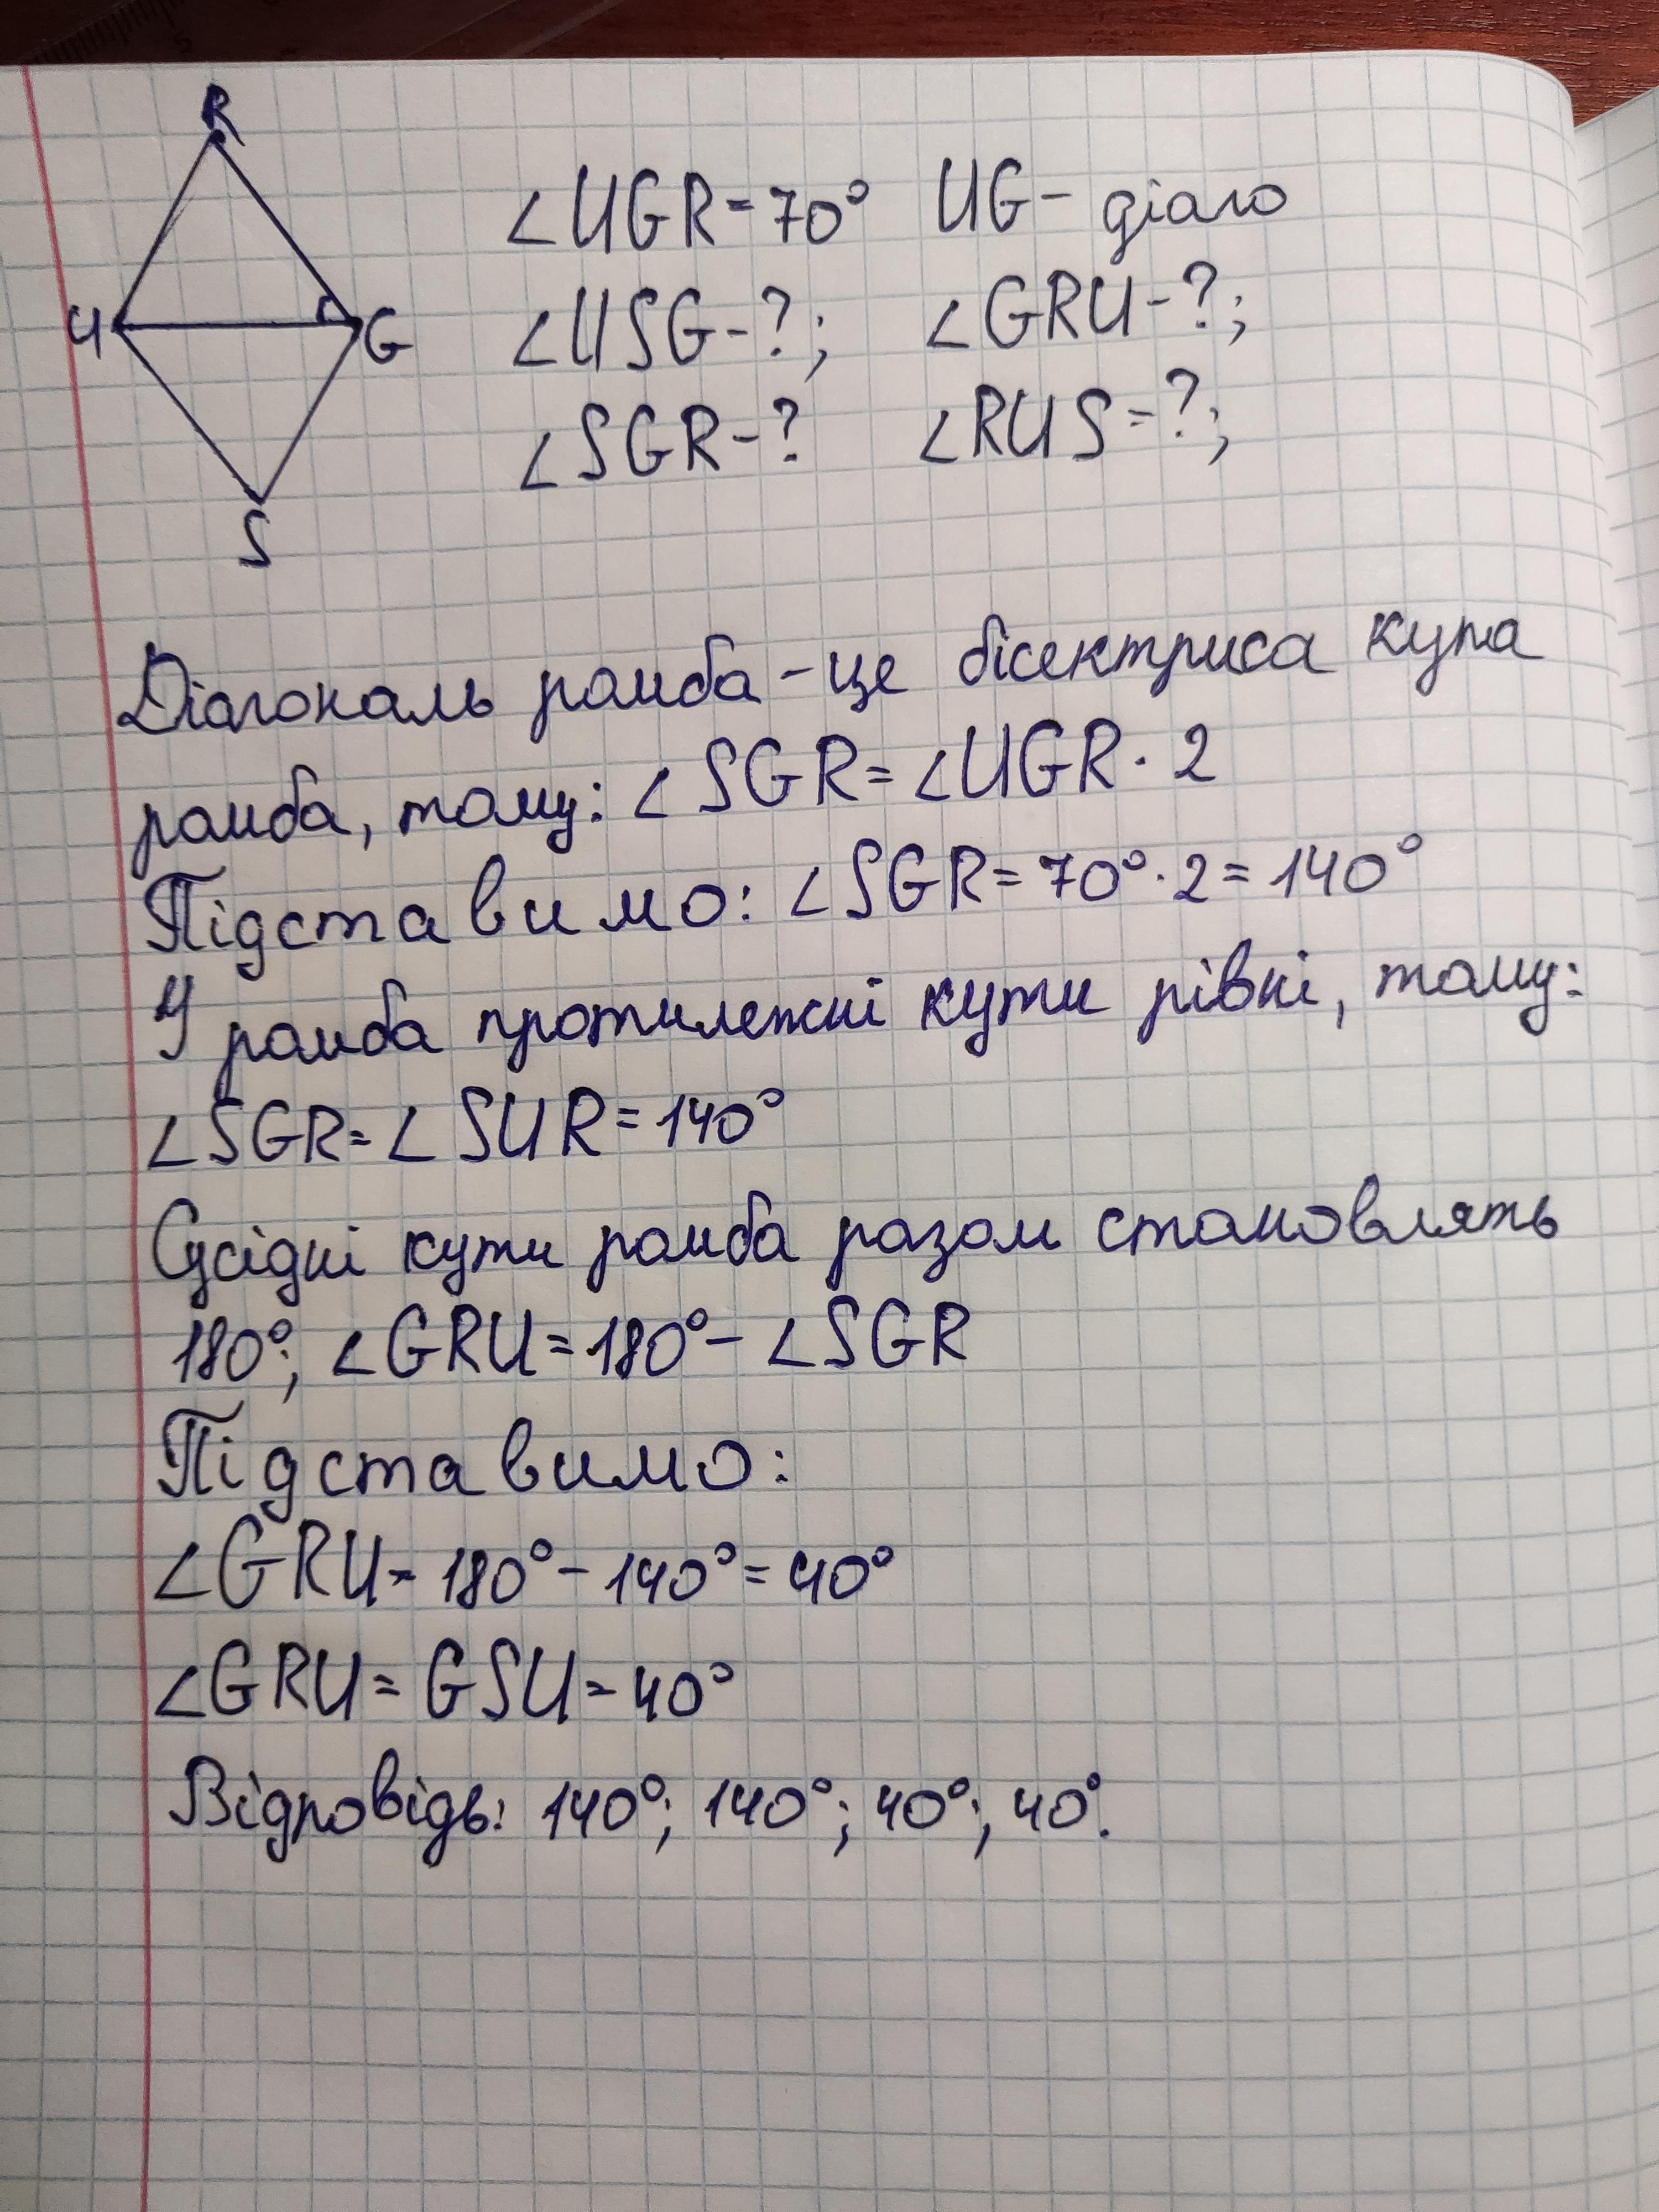 R
∠UGR=70° UG- діаго
∠USG-?; ∠GRU-?;
U G
∠SGR-? ∠RUS=?;
S
Діагональ ромба - це бісектриса кута
ромба, тому: ∠SGR=∠UGR·2
Підставимо: ∠SGR=70°·2=140°
У ромба протилежні кути рівні, тому:
∠SGR=∠SUR=140°
Сусідні кути ромба разом становлять
180°; ∠GRU=180°-∠SGR
Підставимо:
∠GRU=180°-140°=40°
∠GRU=GSU=40°
Відповідь: 140°; 140°; 40°; 40°.